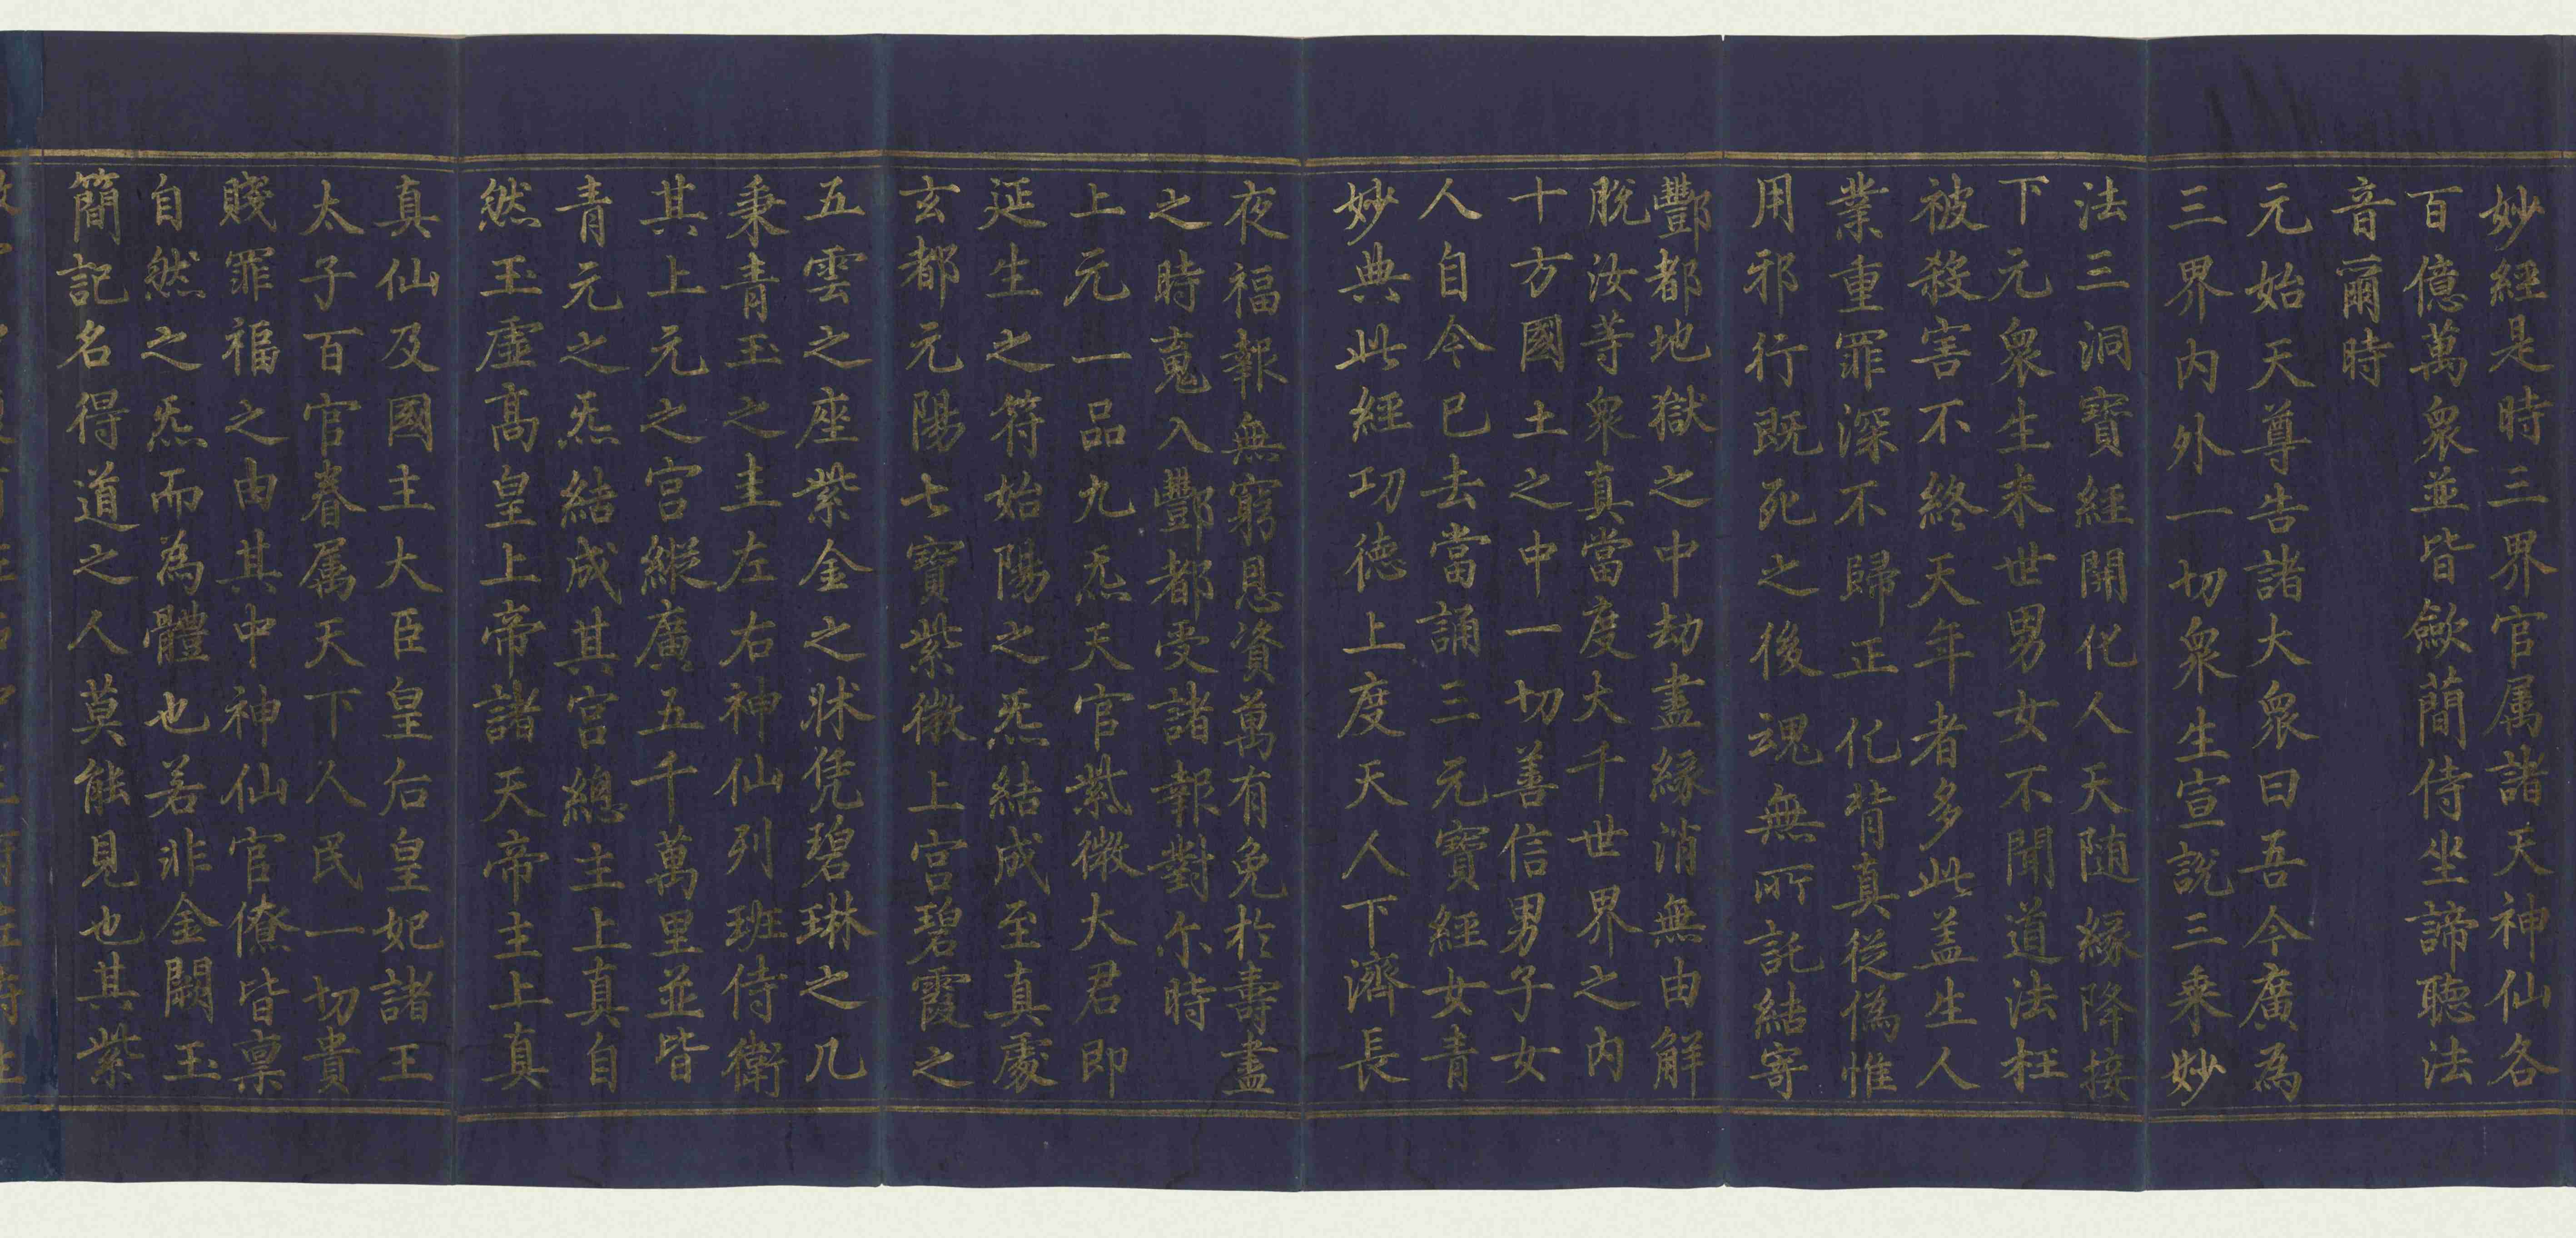 妙經是時三界官属諸天神仙各
百億萬衆並皆歛蕳侍坐諦聽法
音爾時
元始天尊告諸大衆曰吾今廣為
三界内外一切衆生宣說三乗妙
法三洞寶經開化人天随緣降接
下元衆生未世男女不聞道法枉
被殺害不終天年者多此盖生人
業重罪深不歸正化背真從偽惟
用邪行既死之後魂無所託結寄
酆都地獄之中劫盡緣消無由解
脫汝等衆真當度大千世界之内
十方國土之中一切善信男子女
人自今已去當誦三元寶經女青
妙典此經功徳上度天人下濟長
夜福報無窮恩資萬有免於壽盡
之時䰟入酆都受諸報對尓時
上元一品九炁天官紫微大君即
延生之符始陽之炁結成至真處
玄都元陽七寶紫微上宫碧霞之
五雲之座紫金之牀凭碧琳之几
秉青玉之圭左右神仙列班侍衛
其上元之宫縱廣五千萬里並皆
青元之炁結成其宫總主上真自
然玉虛髙皇上帝諸天帝主上真
真仙及國主大臣皇后皇妃諸王
太子百官眷属天下人民一切貴
賤罪福之由其中神仙官僚皆禀
自然之炁而為體也若非金闕玉
簡記名得道之人莫能見也其紫